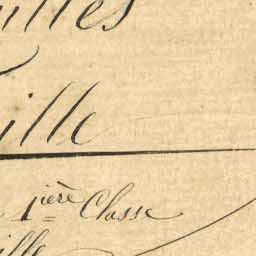 illes
ille
1ière Classe
ille